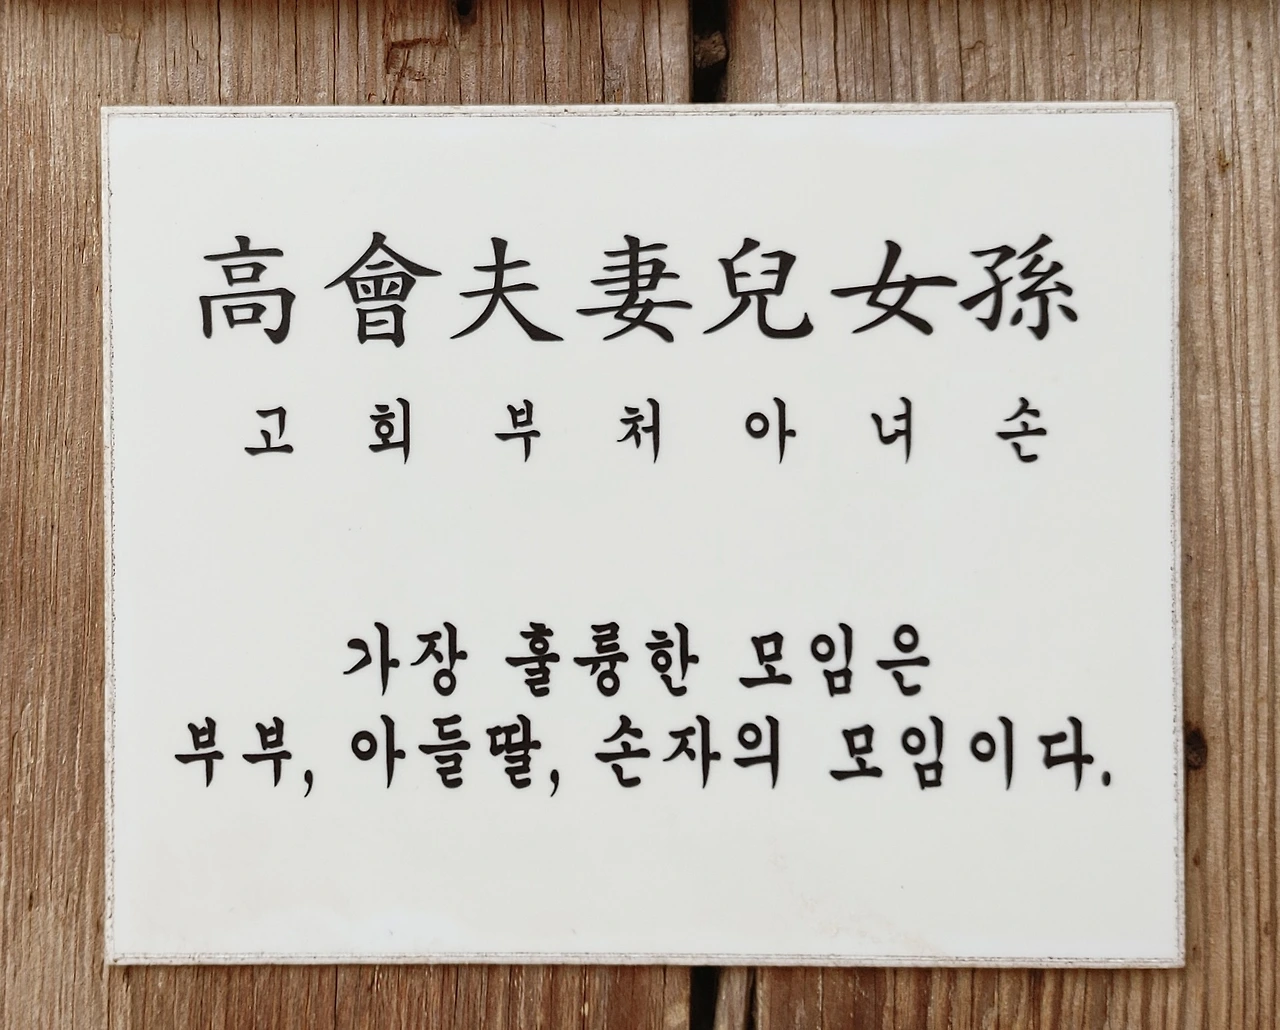 高會夫妻兒女孫
고 회 부 처 아 녀 손
가장 훌륭한 모임은
부부, 아들딸, 손자의 모임이다.